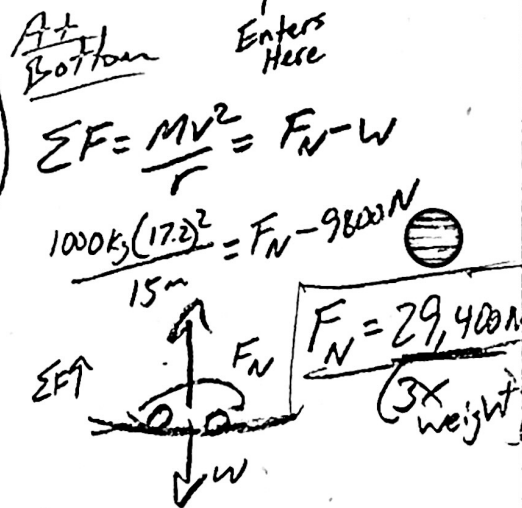 At
Bottom
Enters
Here
ΣF = MV²/r = F_N - W
1000kg(17.2)²/15m = F_N - 9800N
F_N = 29,400N
(3x weight
ΣF↑
F_N
W